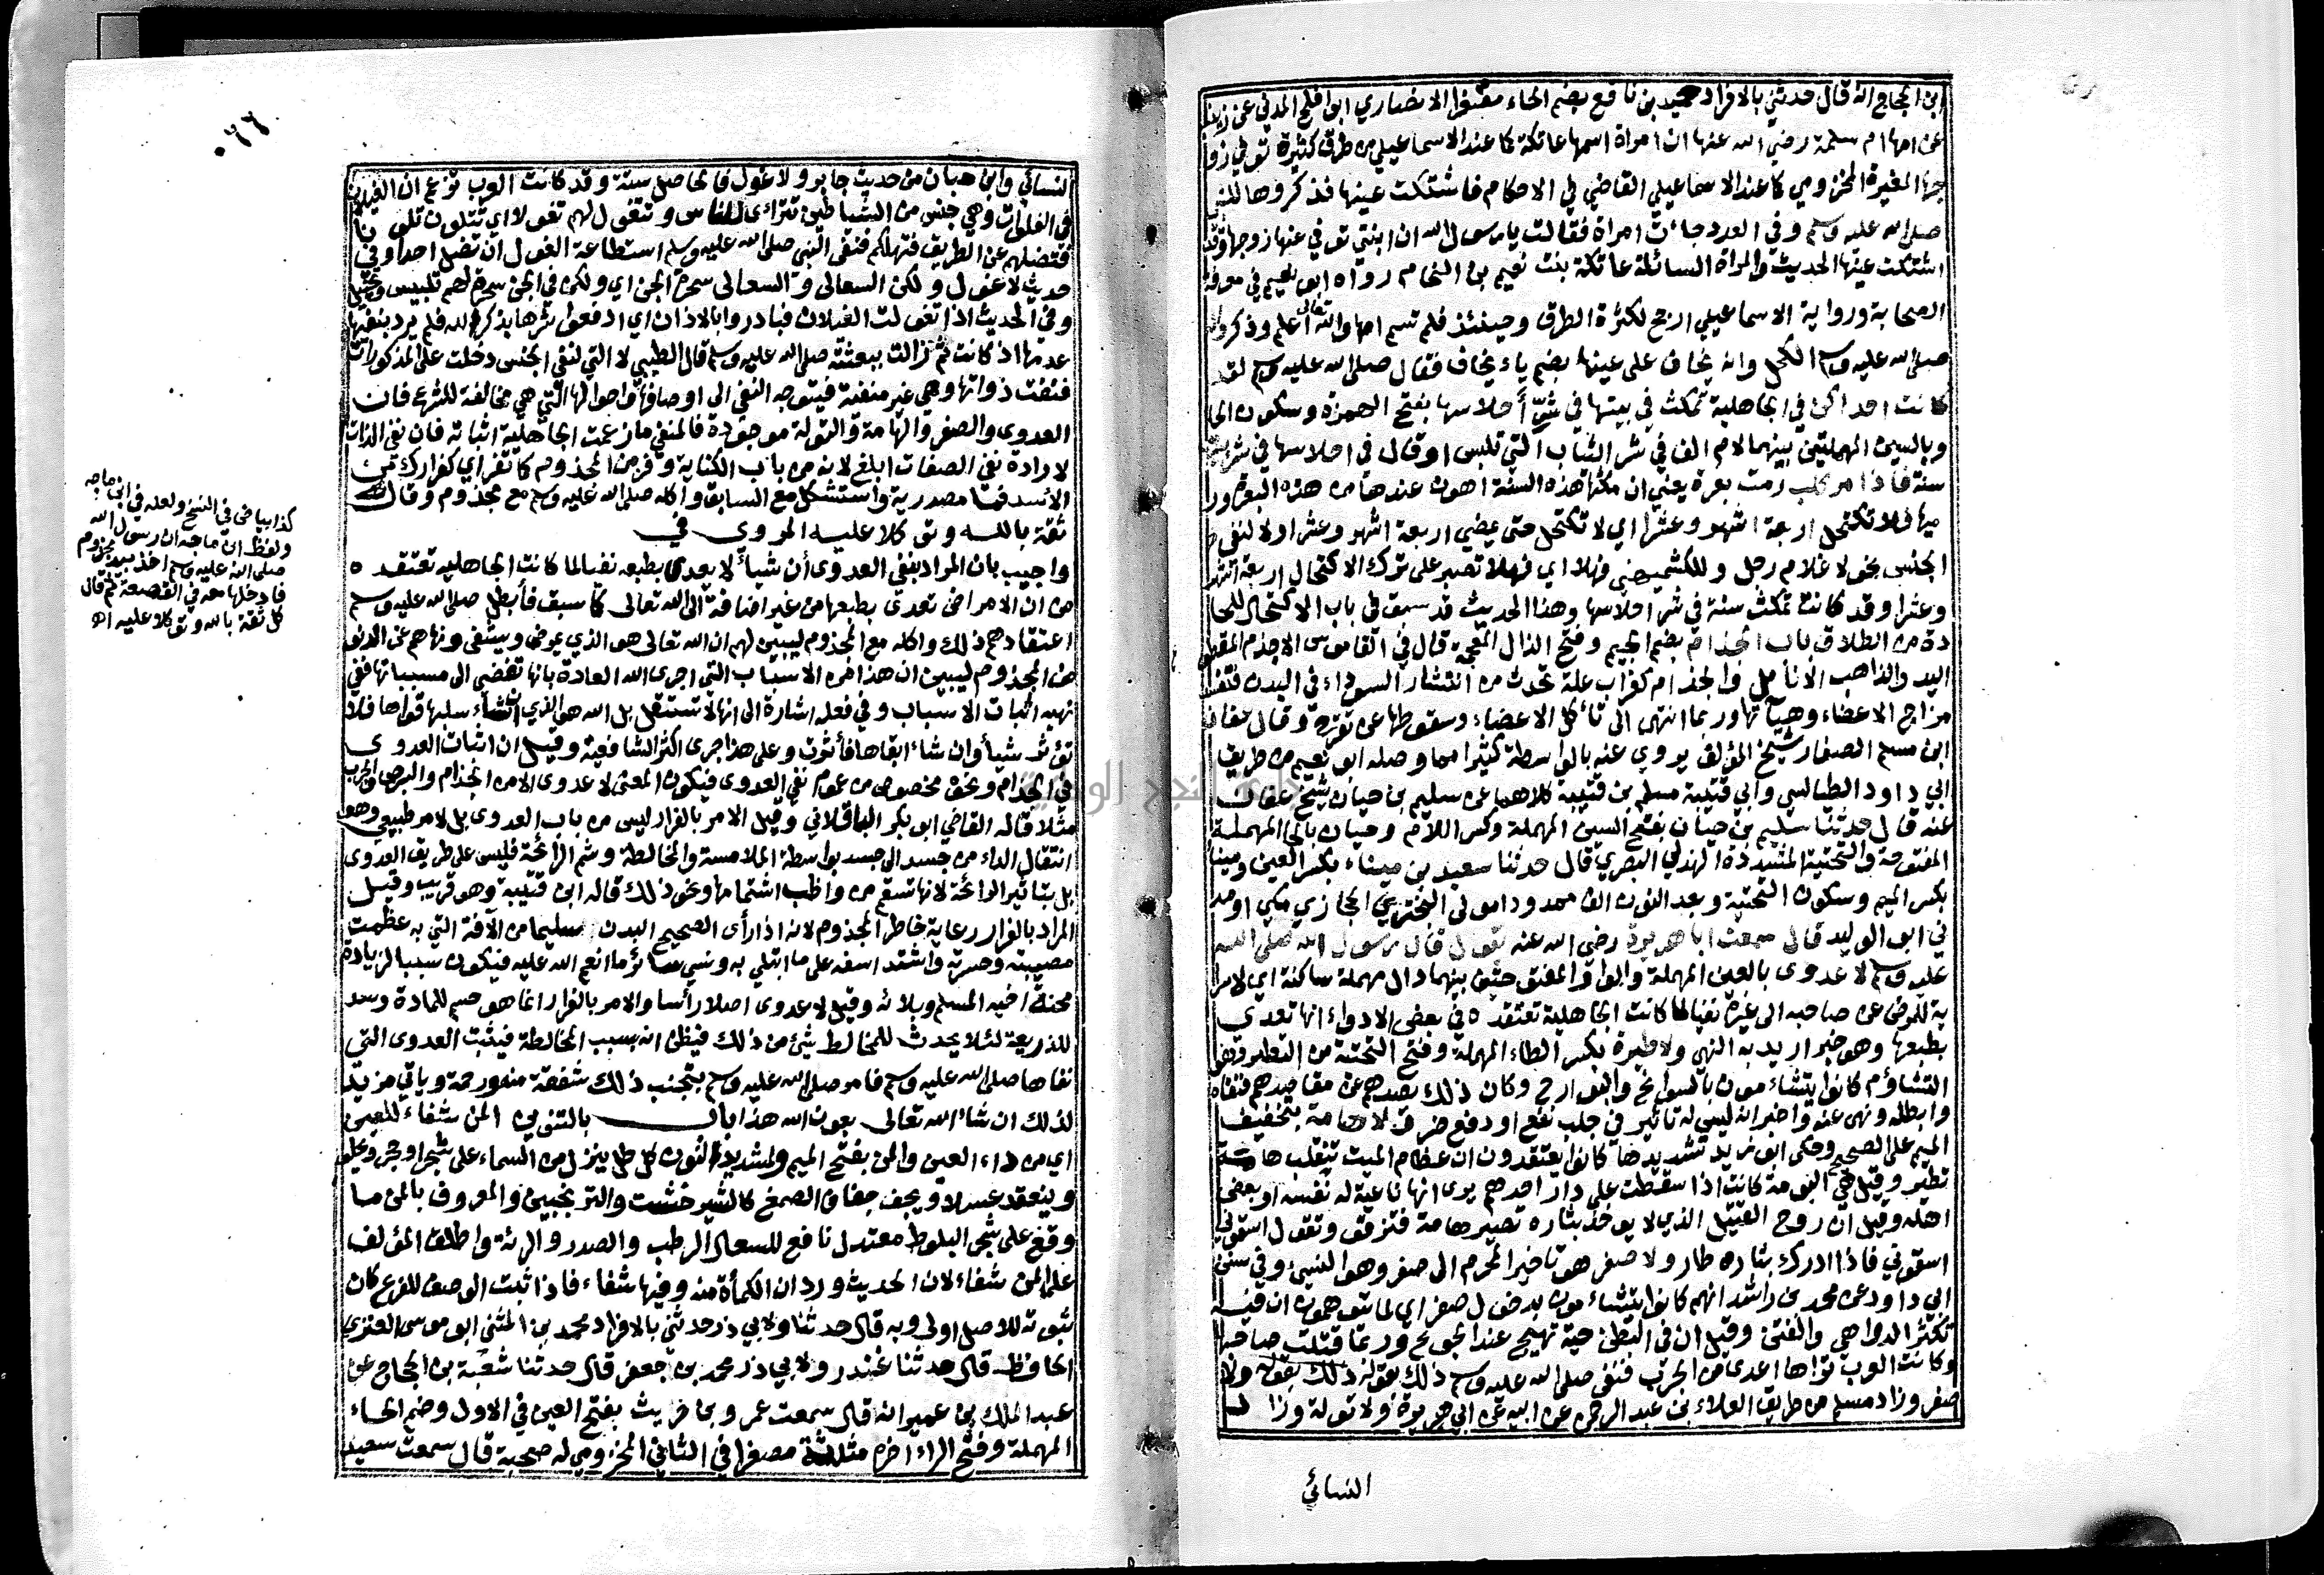 ابن الحجاج انه قال حدثني بالافراد حميد بن نافع بضم الحاء مصغرا الانصاري ابو افلح المدني عن زينب
عن امها ام سلمة رضي الله عنها ان امراة اسمها عاتكة كما عند الاسماعيلي من طرق كثيرة توفي زو
جها المغيرة المخزومي كما عند الاسماعيلي القاضي في الاحكام فاشتكت عينها فذكروها للنبي
صلى الله عليه وسلم وفي العدد جاءت امراة فقالت يا رسول الله ان ابنتي توفي عنها زوجها وقد
اشتكت عينها الحديث والمراة السائلة عاتكة بنت نعيم بن النحام رواه ابو نعيم في معرفة
الصحابة ورواية الاسماعيلي ارجح لكثرة الطرق وحينئذ فلم تسم امها والله تعالى اعلم وذكروا له
صلى الله عليه وسلم الكحل وانه يخاف على عينها بضم ياء يخاف فقال صلى الله عليه وسلم لقد
كانت احداكن في الجاهلية تمكث في بيتها في شر أحلاسها بفتح الهمزة وسكون الحا
وبالسين المهملتين بينهما لام الف في شر الثياب التي تلبس او قال في احلاسها في شر بيتها
سنة فاذا مر كلب رمت بعرة يعني ان مكثها هذه السنة اهون عندها من هذه البعرة ور
ميها فلا تكتحل اربعة اشهر وعشرا اي لا تكتحل حتى يمضي اربعة اشهر وعشرا ولا لنفي
الجنس نحو لا غلام رجل وللكشميهني فهلا اي فهلا تصبر على ترك الاكتحال اربعة اشهر
وعشرا وقد كانت تمكث سنة في شر احلاسها وهذا الحديث قد سبق في باب الاكتحال للحا
دة من الطلاق باب الجذام بضم الجيم وفتح الذال المعجمة قال في القاموس الاجذم المقطوع
اليد والذاهب الانامل والجذام كغراب علة تحدث من انتشار السوداء في البدن فتفسد
مزاج الاعضاء وهيآتها وربما انتهى الى تأكل الاعضاء وسقوطها عن تقرح وقال عفان
ابن مسلم الصفار شيخ المؤلف يروي عنه بالواسطة كثيرا مما وصله ابو نعيم من طريق
ابي داود الطيالسي وابي قتيبة مسلم بن قتيبة كلاهما عن سليم بن حيان شيخ عفان
عنه قال حدثنا سليم بن حيان بفتح السين المهملة وكسر اللام وحيان بالحا المهملة
المفتوحة والتحتية المشددة الهذلي البصري قال حدثنا سعيد بن ميناء بكسر العين ومينا
بكسر الميم وسكون التحتية وبعد النون الف ممدودا مولى البختري الحجازي مكي او مد
ني ابو الوليد قال سمعت ابا هريرة رضي الله عنه يقول قال رسول الله صلى الله
عليه وسلم لا عدوى بالعين المهملة والواو المفتوحتين بينهما دال مهملة ساكنة اي لا سرا
ية للمرض عن صاحبه الى غيره نفيا لما كانت الجاهلية تعتقده في بعض الادواء انها تعدي
بطبعها وهو خبر اريد به النهي ولا طيرة بكسر الطاء المهملة وفتح التحتية من التطير وهو
التشاؤم كانوا يتشاءمون بالسوانح والبوارح وكان ذلك يصدهم عن مقاصدهم فنفاه
وابطله ونهى عنه واخبر انه ليس له تاثير في جلب نفع او دفع ضر ولا هامة بتخفيف
الميم على الصحيح وحكى ابو زيد تشديدها كانوا يعتقدون ان عظام الميت تنقلب هامة
تطير وقيل هي البومة كانت اذا سقطت على دار احدهم يرى انها ناعية له نفسه او بعض
اهله وقيل ان روح القتيل الذي لا يوخذ بثاره تصير هامة فتزقو وتقول اسقوني
اسقوني فاذا ادرك بثاره طار ولا صفر هو تاخير المحرم الى صفر وهو النسيء وفي سنن
ابي داود عن محمد بن راشد انهم كانوا يتشاءمون بدخول صفر اي لما يتوهمون ان فيه
تكثر الدواهي والفتن وقيل ان في البطن حية تهيج عند الجوع وربما قتلت صاحبها
وكانت العرب تراها اعدى من الجرب فنفى صلى الله عليه وسلم ذلك بقوله ولا
صفر وزاد مسلم من طريق العلاء بن عبد الرحمن عن ابيه عن ابي هريرة ولا تولة وزاد
النسائي
٠٦٦
النسائي وابن حبان من حديث جابر ولا غول فالحاصل ستة وقد كانت العرب تزعم ان الغيلان
في الفلوات وهي جنس من الشياطين تتراءى للناس وتتغول لهم تغولا اي تتلون تلونا
فتضلهم عن الطريق فتهلكهم فنفى النبي صلى الله عليه وسلم استطاعة الغول ان تضل احدا وفي
حديث لا غول ولكن السعالى والسعالى سحرة الجن اي ولكن في الجن سحرة لهم تلبيس وتخييل
وفي الحديث اذا تغولت الغيلان فبادروا بالاذان اي ادفعوا شرها بذكر الله فلم يرد بنفيها
عدمها اذ كانت ثم زالت ببعثته صلى الله عليه وسلم قال الطيبي لا التي لنفي الجنس دخلت على المذكورات
فنفت ذواتها وهي غير منفية فيتوجه النفي الى اوصافها واحوالها التي هي مخالفة للشرع فان
العدوى والصفر والهامة والتولة موجودة فالمنفي ما زعمت الجاهلية اثباته فان نفي الذات
لارادة نفي الصفات ابلغ لانه من باب الكناية وفر من المجذوم كما تفر اي كفرارك من
الاسد فما مصدرية واستشكل مع السابق واكله صلى الله عليه وسلم مع مجذوم وقال
ثقة بالله وتوكلا عليه المروي في
واجيب بان المراد بنفي العدوى أن شيأ لا يعدي بطبعه نفيا لما كانت الجاهلية تعتقده
من ان الامراض تعدي بطبعها من غير اضافة الى الله تعالى كما سبق فأبطل صلى الله عليه وسلم
اعتقادهم ذلك واكله مع المجذوم ليبين لهم ان الله تعالى هو الذي يمرض ويشفي ونهاهم عن الدنو
من المجذوم ليبين ان هذا من الاسباب التي اجرى الله العادة بانها تفضي الى مسبباتها ففي
نهيه اثبات الاسباب وفي فعله اشارة الى انها لا تستقل بل الله هو الذي ان شاء سلبها قواها فلا
تؤثر شيأ وان شاء ابقاها فأثرت وعلى هذا جرى اكثر الشافعية وقيل ان اثبات العدوى
في الجذام ونحوه مخصوص من عموم نفي العدوى فيكون المعنى لا عدوى الا من الجذام والبرص والجرب
مثلا قاله القاضي ابو بكر الباقلاني وقيل الامر بالفرار ليس من باب العدوى بل لامر طبيعي وهو
انتقال الداء من جسد الى جسد بواسطة الملامسة والمخالطة وشم الرائحة فليس على طريق العدوى
بل بتاثير الرائحة لانها تسقم من واظب اشتمامها ونحو ذلك قاله ابن قتيبة وهو قريب وقيل
المراد بالفرار رعاية خاطر المجذوم لانه اذا رأى الصحيح البدن سليما من الآفة التي به عظمت
مصيبته وحسرته واشتد اسفه على ما ابتلي به ونسي سائر ما انعم الله عليه فيكون سببا لزيادة
محنة اخيه المسلم وبلائه وقيل لا عدوى اصلا رأسا والامر بالفرار انما هو حسم للمادة وسد
للذريعة لئلا يحدث للمخالط شيء من ذلك فيظن انه بسبب المخالطة فيثبت العدوى التي
نفاها صلى الله عليه وسلم فامر صلى الله عليه وسلم بتجنب ذلك شفقة منه ورحمة وياتي مزيد
لذلك ان شاء الله تعالى بعون الله هذا باب بالتنوين المن شفاء للعين
اي من داء العين والمن بفتح الميم وتشديد النون كل طل ينزل من السماء على شجر او حجر ويحلو
وينعقد عسلا ويجف جفاف الصمغ كالشير خشت والترنجبين والمعروف بالمن ما
وقع على شجر البلوط معتدل نافع للسعال الرطب والصدر والرئة واطلق المؤلف
على المن شفاء لان الحديث ورد ان الكمأة منه وفيها شفاء فاذا ثبت الوصف للفرع كان
ثبوته للاصل اولى وبه قال حدثنا ولابي ذر حدثني بالافراد محمد بن المثنى ابو موسى العنزي
الحافظ قال حدثنا غندر ولابي ذر محمد بن جعفر قال حدثنا شعبة بن الحجاج عن
عبد الملك بن عمير انه قال سمعت عمرو بن حريث بفتح العين في الاول وضم الحاء
المهملة وفتح الراء اخره مثلثة مصغرا في الثاني المخزومي له صحبة قال سمعت سعيد
كذا بياض في النسخ ولعله في ابن ماجه
ولفظ ابن ماجة ان رسول الله
صلى الله عليه وسلم اخذ بيد مجذوم
فادخلها معه في القصعة ثم قال
كل ثقة بالله وتوكلا عليه اه